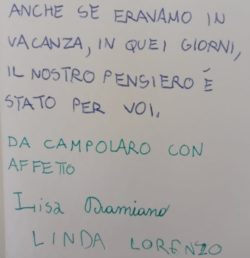 ANCHE SE ERAVAMO IN
VACANZA, IN QUEI GIORNI,
IL NOSTRO PENSIERO È
STATO PER VOI.
DA CAMPOLARO CON
AFFETTO
Lisa Damiano
LINDA LORENZO